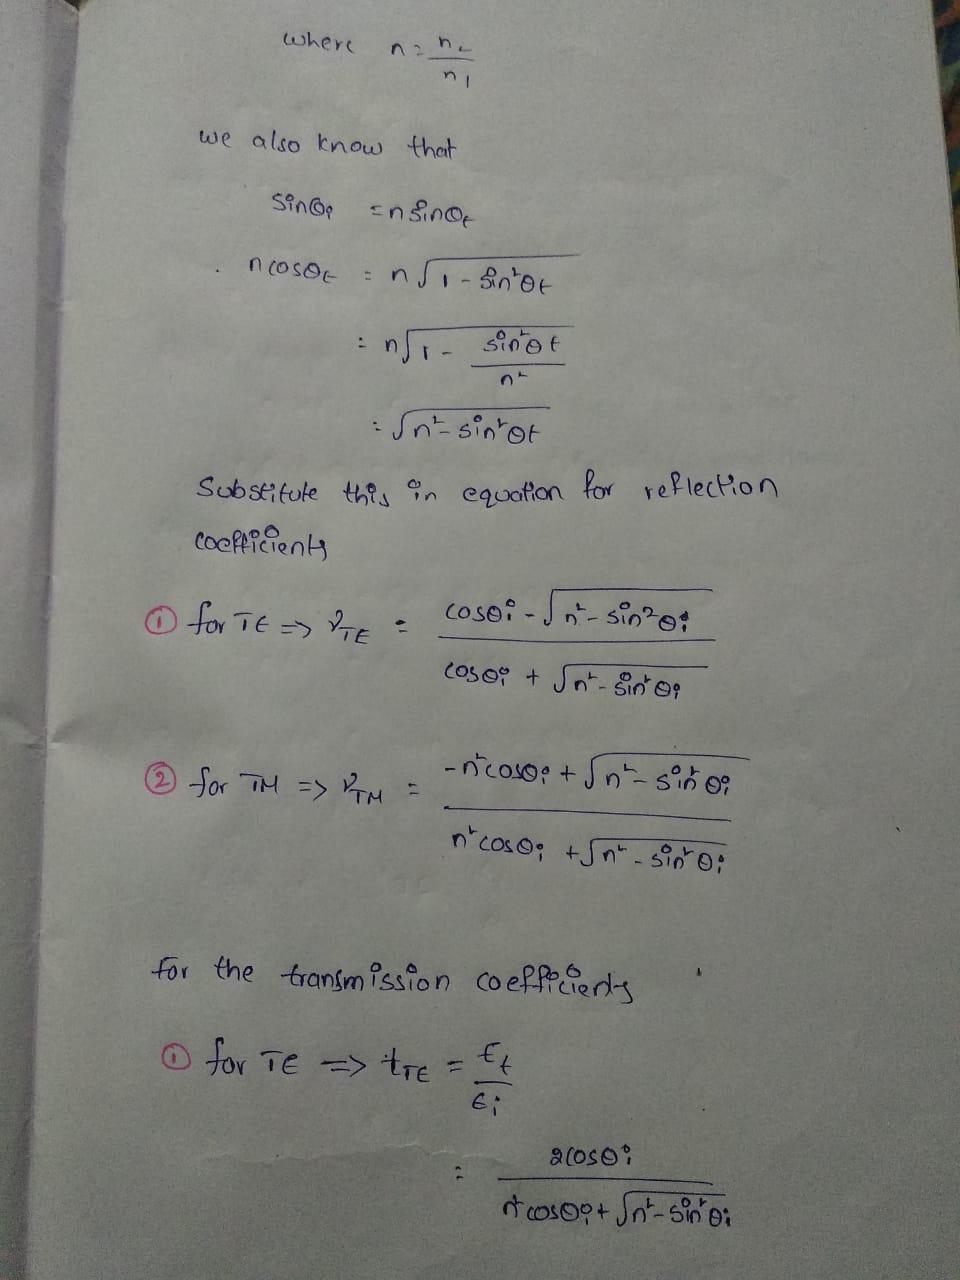 where n = n₂/n₁
we also know that
sinθi = n sinθt
n cosθt = n√(1 - sin²θt)
= n√(1 - sin²θt/n²)
= √(n² - sin²θt)
Substitute this in equation for reflection
coefficients
① for TE => rTE = (cosθi - √(n² - sin²θi))/(cosθi + √(n² - sin²θi))
② for TM => rTM = (-n²cosθi + √(n² - sin²θi))/(n²cosθi + √(n² - sin²θi))
for the transmission coefficients
① for TE => tTE = Et/Ei
= 2cosθi/(n²cosθi + √(n² - sin²θi))